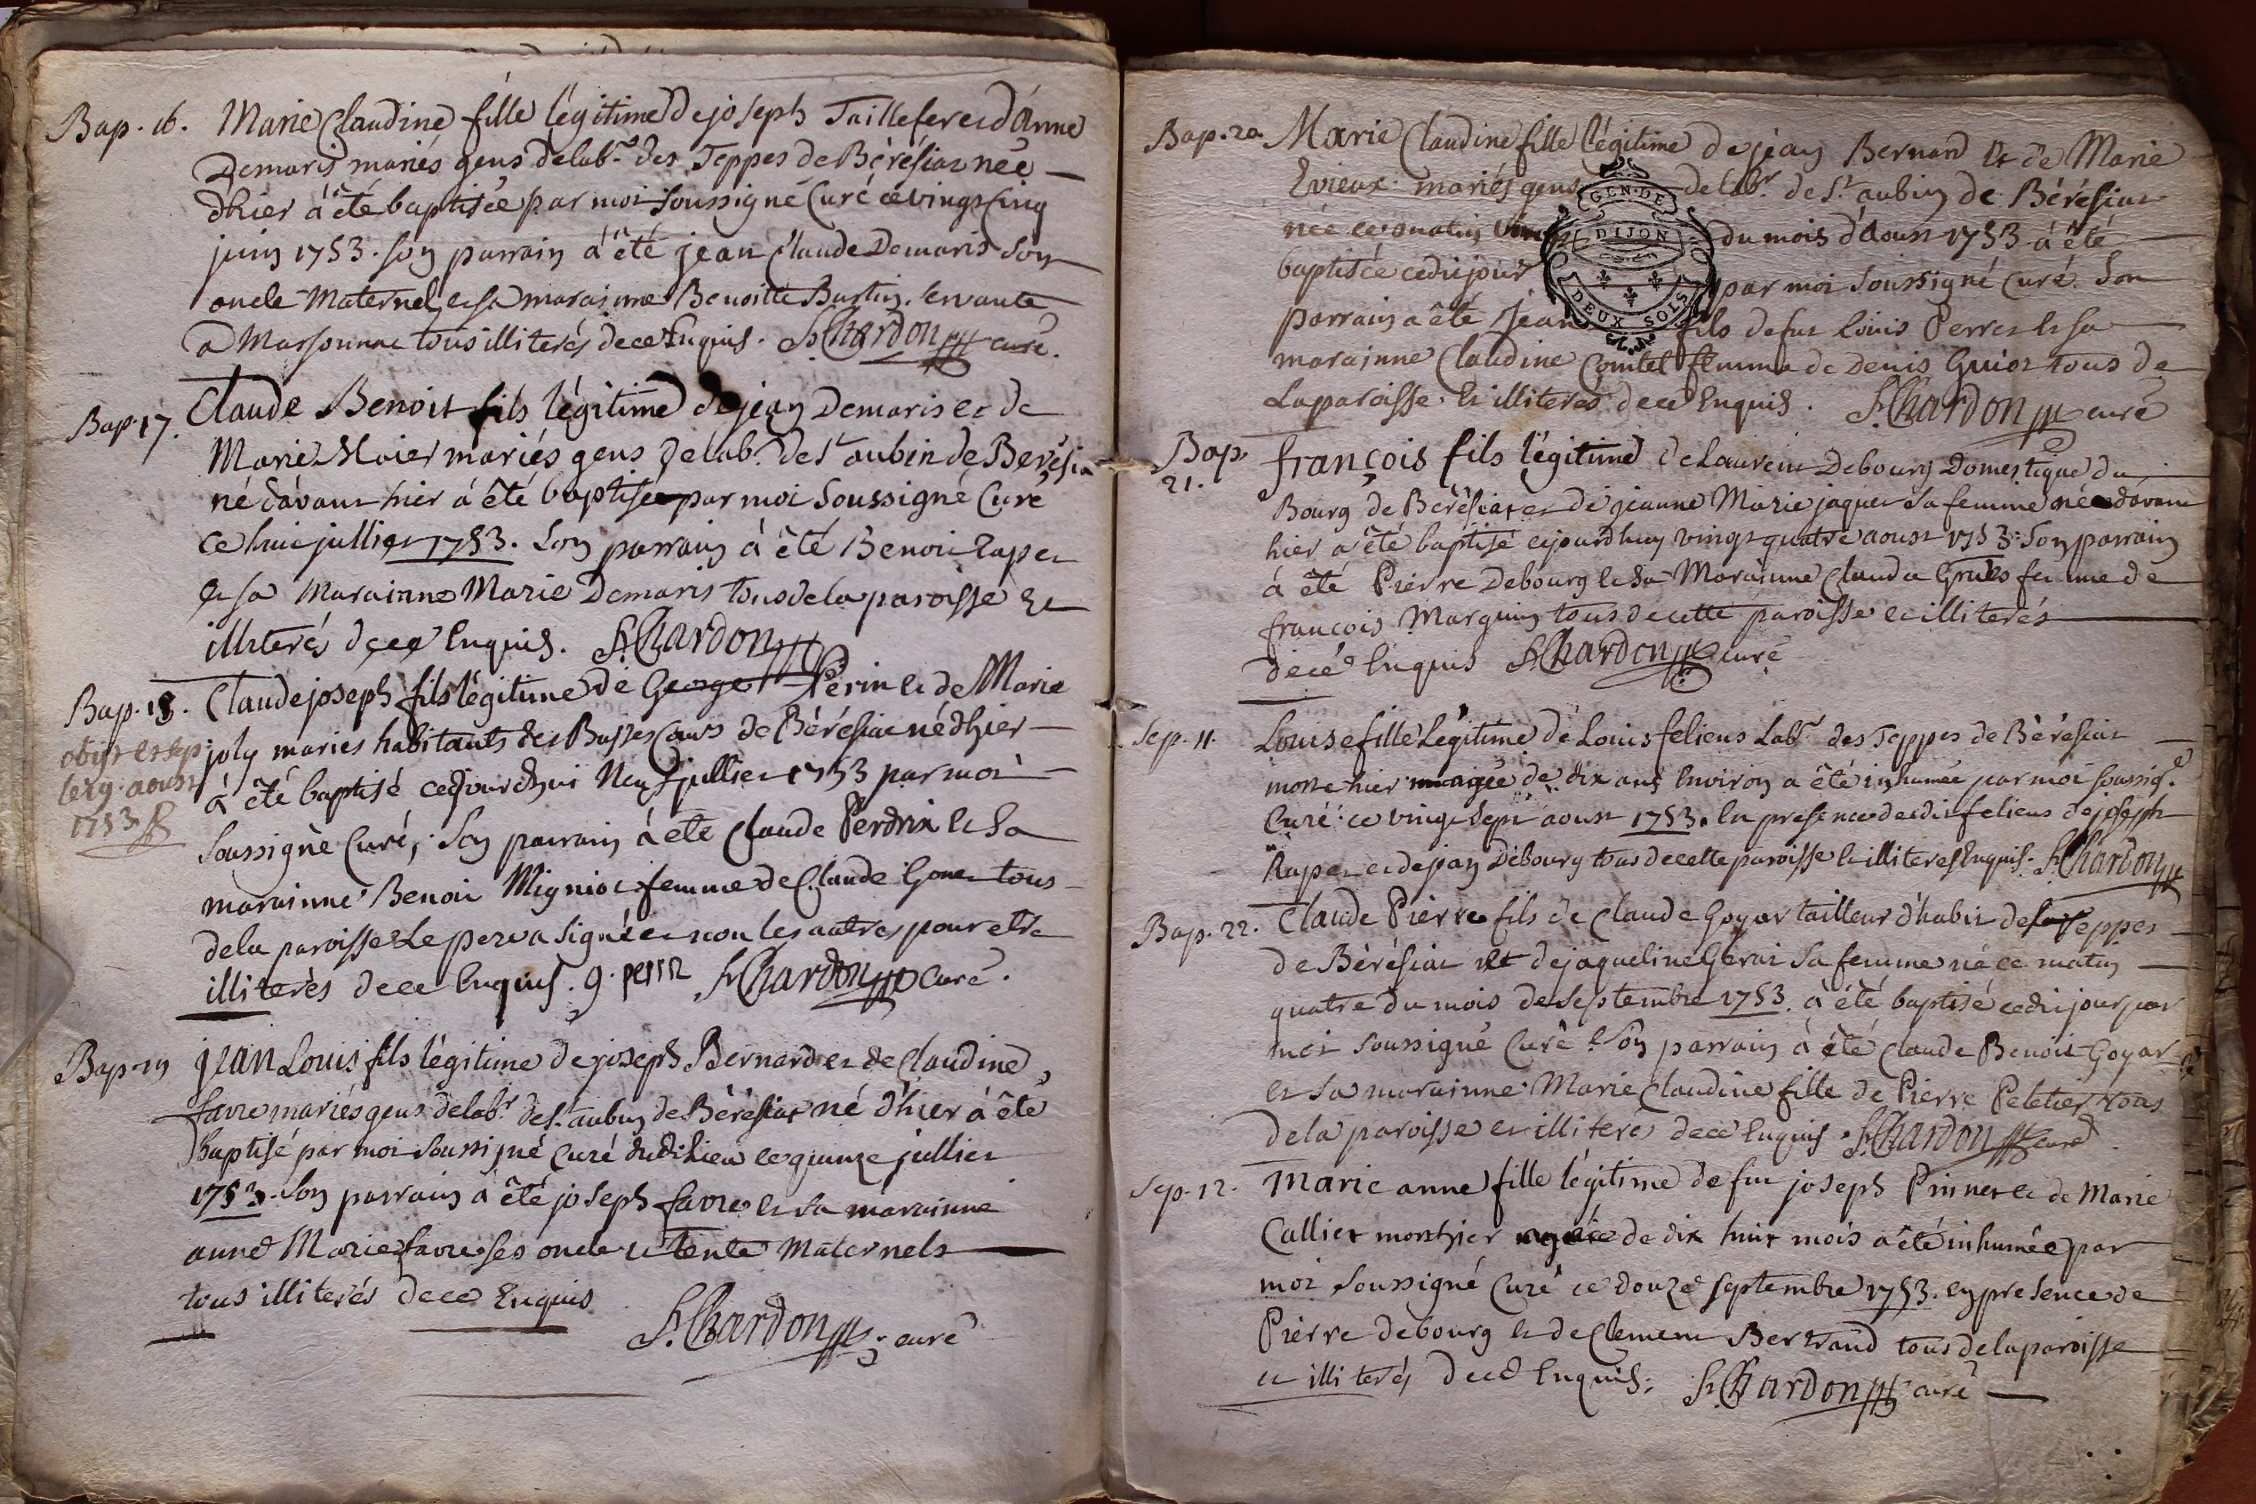 Bap. 16. Marie Claudine fille légitime de joseph Taillefer et d'Anne
Demaris mariés gens de lab.r des Teppes de Bérésiat née
d'hier à été baptisée par moi soussigné Curé ce vingt Cinq
juin 1753. son parrain à été jean Claude Demaris son
oncle Maternel et sa marainne Benoitte servante
a Marsonnac tous illiterés de ce Enquis. Fr. Chardon curé.
Bap. 17. Claude Benoit fils légitime de jean Demaris et de
Marie mariés gens de lab.r de St aubin de Berésia
né d'avant hier à été baptisé par moi Soussigné Curé
ce huit jullier 1753. Son parrain à été Benoit Rapet
et sa Marainne Marie Demaris tous de la paroisse Et
illiterés de ce Enquis. Fr. Chardon
Bap. 18. Claude joseph fils légitime de George Perin et de Marie
obiit et sep.
let 9. aoust
1753
joly mariés habitants des Basses Cours de Bérésiat né d'hier
à été baptisé cejourdhui Neuf jullier 1753 par moi
Soussigné Curé, Son parrain à été Claude Perdrix et Sa
marainne Benoit Mignot femme de Claude Gonet tous
de la paroisse Le pere a signé et non les autres pour etre
illiterés de ce Enquis. g. perin Fr. Chardon curé.
Bap. 19 jean Louis fils légitime de joseph Bernard et de Claudine
favre mariés gens de lab.r de St. aubin de Bérésiat né d'hier à été
Baptisé par moi soussigné Curé dudit lieu ce quinze jullier
1753. Son parrain à été joseph favre et sa marainne
anne Marie favre ses oncle et tente Maternels
tous illiterés de ce Enquis
Fr. Chardon curé
Bap. 20 Marie Claudine fille légitime de jean Bernard Et de Marie
Evieux mariés gens de lab.r de St. aubin de Bérésiat
GEN. DE
DIJON
DEUX SOLS
née ce matin du mois d'Aoust 1753 à été
baptisée cedit jour par moi Soussigné Curé. Son
parrain a été Jean fils de fut Louis Perret et sa
marainne Claudine Comtet femme de Denis Guiot tous de
La paroisse Et illiterés de ce Enquis. Fr. Chardon curé
Bap. 21. françois fils légitime de Laurent Debourg Domestique du
Bourg de Bérésiat et de jeanne Marie jaquet sa femme né d'avant
hier a été baptisé cejourdhuy vingt quatre aoust 1753. Son parrain
à été Pierre Debourg et Sa Marainne Claude femme de
françois Marguin tous de cette paroisse et illiterés
de ce Enquis Fr. Chardon curé
Sep. 11. Louise fille Légitime de Louis feliens Lab.r des Teppes de Bérésiat
morte hier agée de dix ans Environ a été inhumée par moi soussig.é
Curé ce vingt sept aoust 1753. En presence dudit feliens de joseph
Rapet et de jean Debourg tous de cette paroisse et illiterés Enquis. Fr. Chardon
Bap. 22. Claude Pierre fils de Claude Goyat tailleur d'habit des Teppes
de Bérésiat Et de jaqueline sa femme né ce matin
quatre du mois de Septembre 1753. à été baptisé cedit jour par
moi soussigné Curé. Son parrain à été Claude Benoit Goyat
et sa marainne Marie Claudine fille de Pierre Peletier tous
de la paroisse et illiteré de ce Enquis. Fr. Chardon curé
Sep. 12. Marie anne fille légitime de fut joseph et de Marie
Callier mort hier agée de dix huit mois a été inhumée par
moi Soussigné Curé ce douze septembre 1753. en presence de
Pierre Debourg et de Clement Bertrand tous de la paroisse
et illiterés de ce Enquis. Fr. Chardon curé